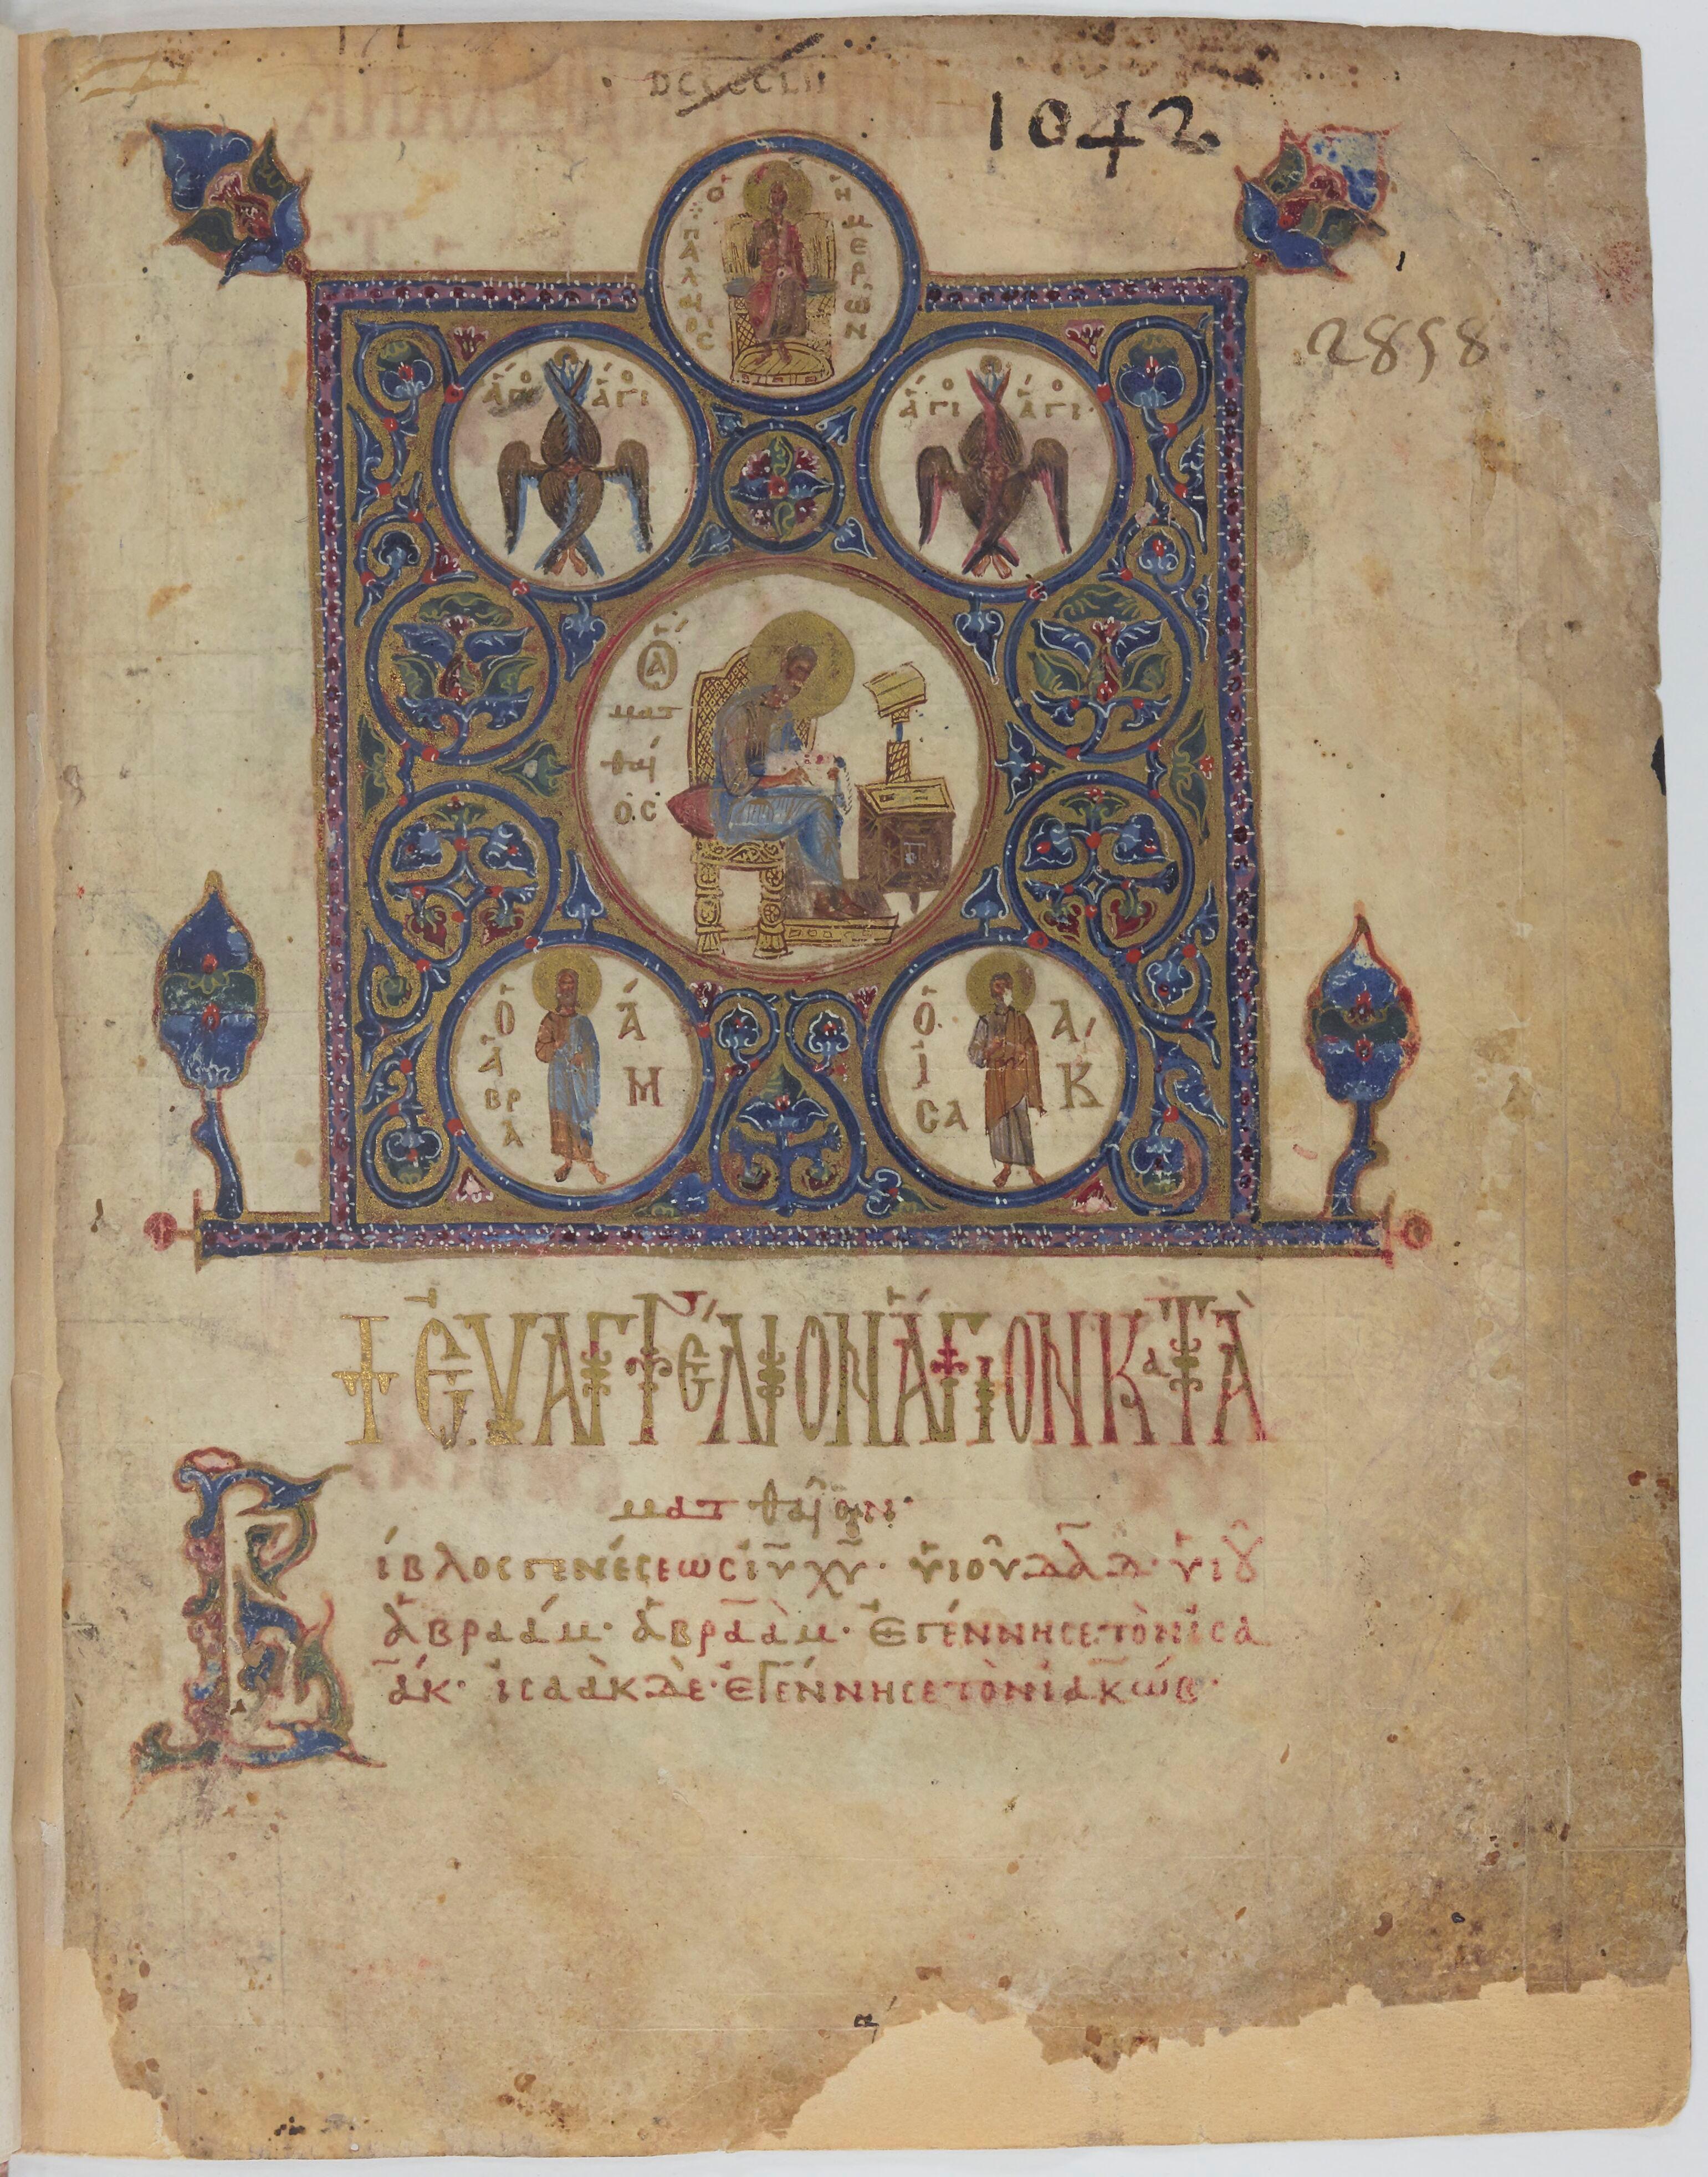 DCCCCLII
1042
2858
Ὁ ΠΑΛΑΙΟC
ΗΜΕΡΩΝ
ἅγιο ἅγιο
ἅγιο ἅγι
Ὁ ἅ
ματ
θαῖ
ος
Ὁ ἈΒΡΑ
ἈΜ
Ὁ ἸCΑ
ΑΚ
+ ΕΥΑΓΓΕΛΙΟΝ ἍΓΙΟΝ ΚαΤᾺ
ματθαῖον·
Βίβλος γενέσεως ἰῡ χῡ· ὑιοῦ δᾱδ· ὑιοῦ
ἀβραάμ· ἀβραὰμ· ἐγέννησε τὸν ἰσα
άκ· ἰσαὰκ δὲ· ἐγέννησε τὸν ἰακώβ·